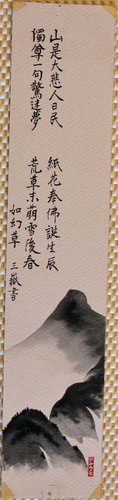 山是大悲人日民
獨尊一句驚迷夢
紙花奉佛誕生辰
荒草未萌雪後春
如幻草 三嶽書